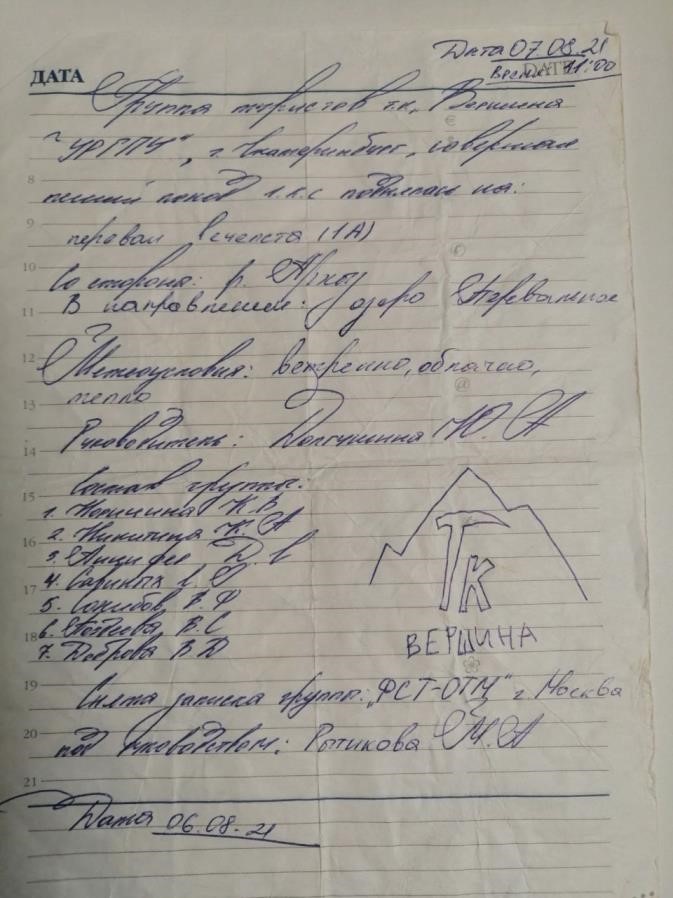 Дата 07.08.21
ДАТА
DATE
Время 11:00
Группа туристов т.к. Вершина
"УРГПУ", г. Екатеринбург, совершая
8
пеший поход 1.к.с поднялась на:
9
перевал (1А)
10
Со стороны: р. Архыз
11
В направлении: озеро Перевальное
12
Метеоусловия: ветренно, облачно,
13
тепло
14
Руководитель: Долгушина Ю. А
Состав группы:
15
1. К В
2. Никитина К. А
16
3. Д. В
4.
17
5. Сохибов В. Ф
6. В. С
18
7. Доброва В Д
ТК
ВЕРШИНА
19
Снята записка группы: „ФСТ-ОТМ" г. Москва
20
под руководством: Рытикова М. А
21
Дата 06.08.21